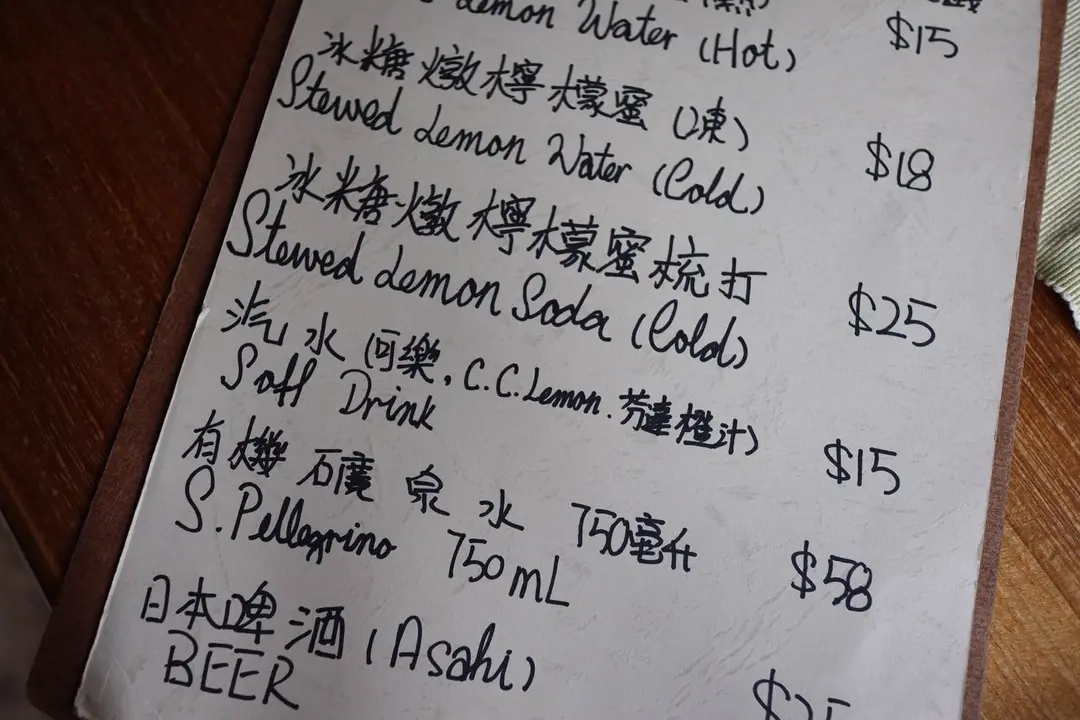 Lemon Water (Hot) $15
冰糖燉檸檬蜜 (凍)
Stewed Lemon Water (Cold) $18
冰糖燉檸檬蜜梳打
Stewed Lemon Soda (Cold) $25
汽水 (可樂, C.C.Lemon. 芬達橙汁)
Soft Drink $15
有機石礦泉水 750毫升
S.Pellegrino 750mL $58
日本啤酒 (Asahi)
BEER